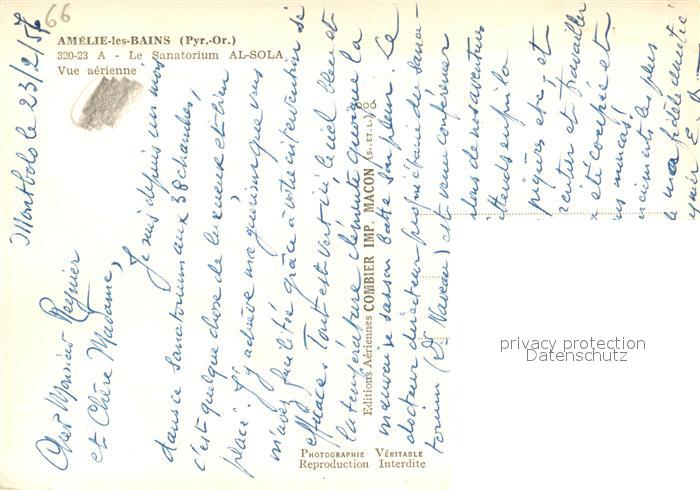 66
AMÉLIE-les-BAINS (Pyr.-Or.)
320-23 A - Le Sanatorium AL-SOLA
Vue aérienne
Montbolo le 23/2/57
Cher Monsieur Regnier
et Chère Madame,
Je suis depuis un mois
dans ce sanatorium aux 38 chambres,
c'est quelque chose de luxueux et bien
placé. J'y achève ma guérison que vous
m'avez facilitée grâce à votre intervention si
efficace. Tout est vert ici le ciel bleu et
la température clémente quoique la
mauvaise saison batte son plein. Le
docteur directeur propriétaire du sana-
torium (Dr Naveau) est venu conférencer
dans
et
pigüres etc, et
rentier et travailler
été coupée et
us mercis!
nciements les plus
le ma fidèle amitié
Editions Aériennes COMBIER IMP. MACON (S.-ET-L.)
PHOTOGRAPHIE VÉRITABLE
Reproduction Interdite
privacy protection
Datenschutz